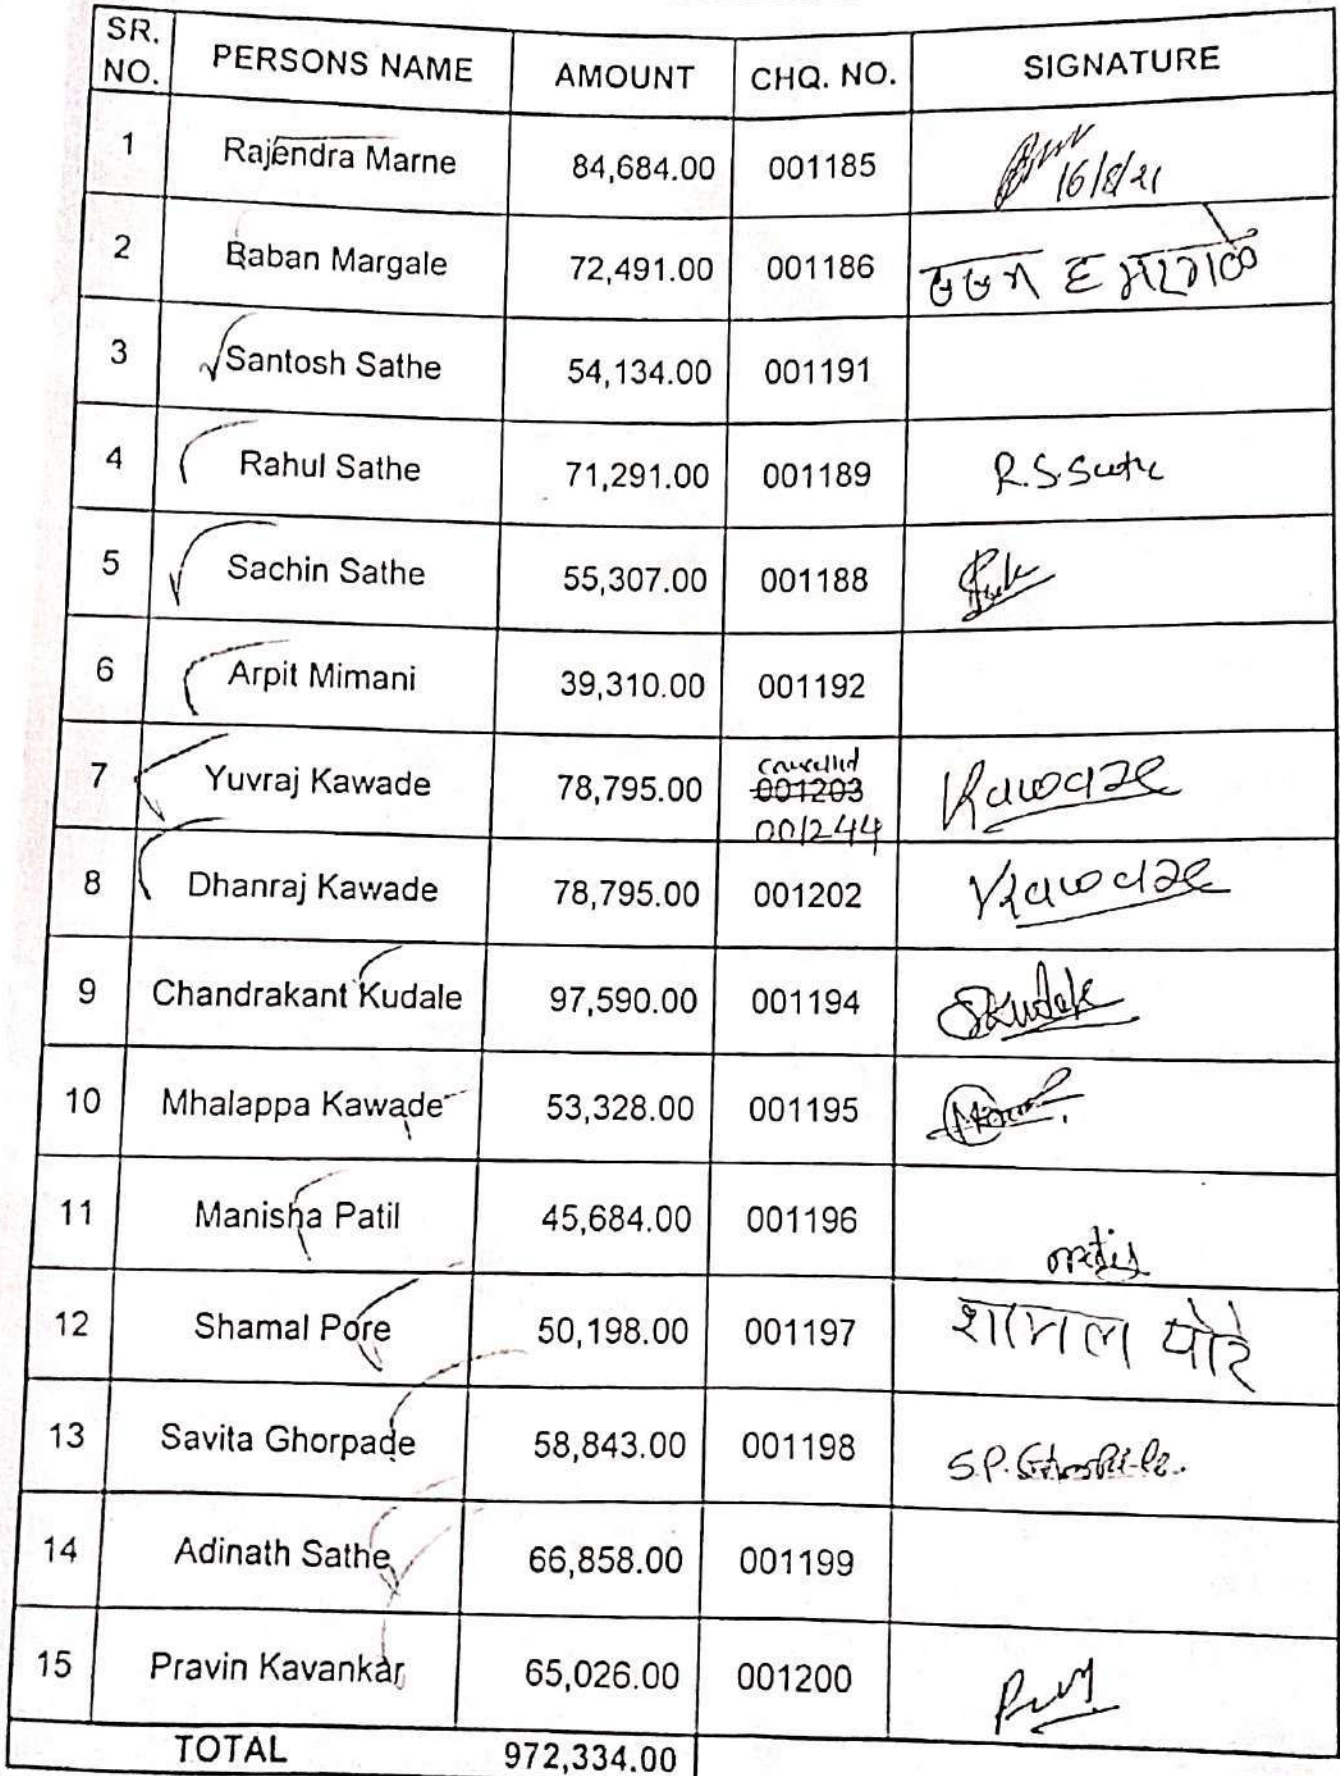 SR. NO. PERSONS NAME AMOUNT CHQ. NO. SIGNATURE
1 Rajendra Marne 84,684.00 001185 16/8/21
2 Baban Margale 72,491.00 001186 बबन ह मारगळे
3 Santosh Sathe 54,134.00 001191
4 Rahul Sathe 71,291.00 001189 R.S.Sathe
5 Sachin Sathe 55,307.00 001188
6 Arpit Mimani 39,310.00 001192
cancelled
7 Yuvraj Kawade 78,795.00 001203 Kawade
001244
8 Dhanraj Kawade 78,795.00 001202 Kawade
9 Chandrakant Kudale 97,590.00 001194 Skudale
10 Mhalappa Kawade 53,328.00 001195
11 Manisha Patil 45,684.00 001196
12 Shamal Pore 50,198.00 001197 शामल पोरे
13 Savita Ghorpade 58,843.00 001198 S.P.
14 Adinath Sathe 66,858.00 001199
15 Pravin Kavankar 65,026.00 001200
TOTAL 972,334.00